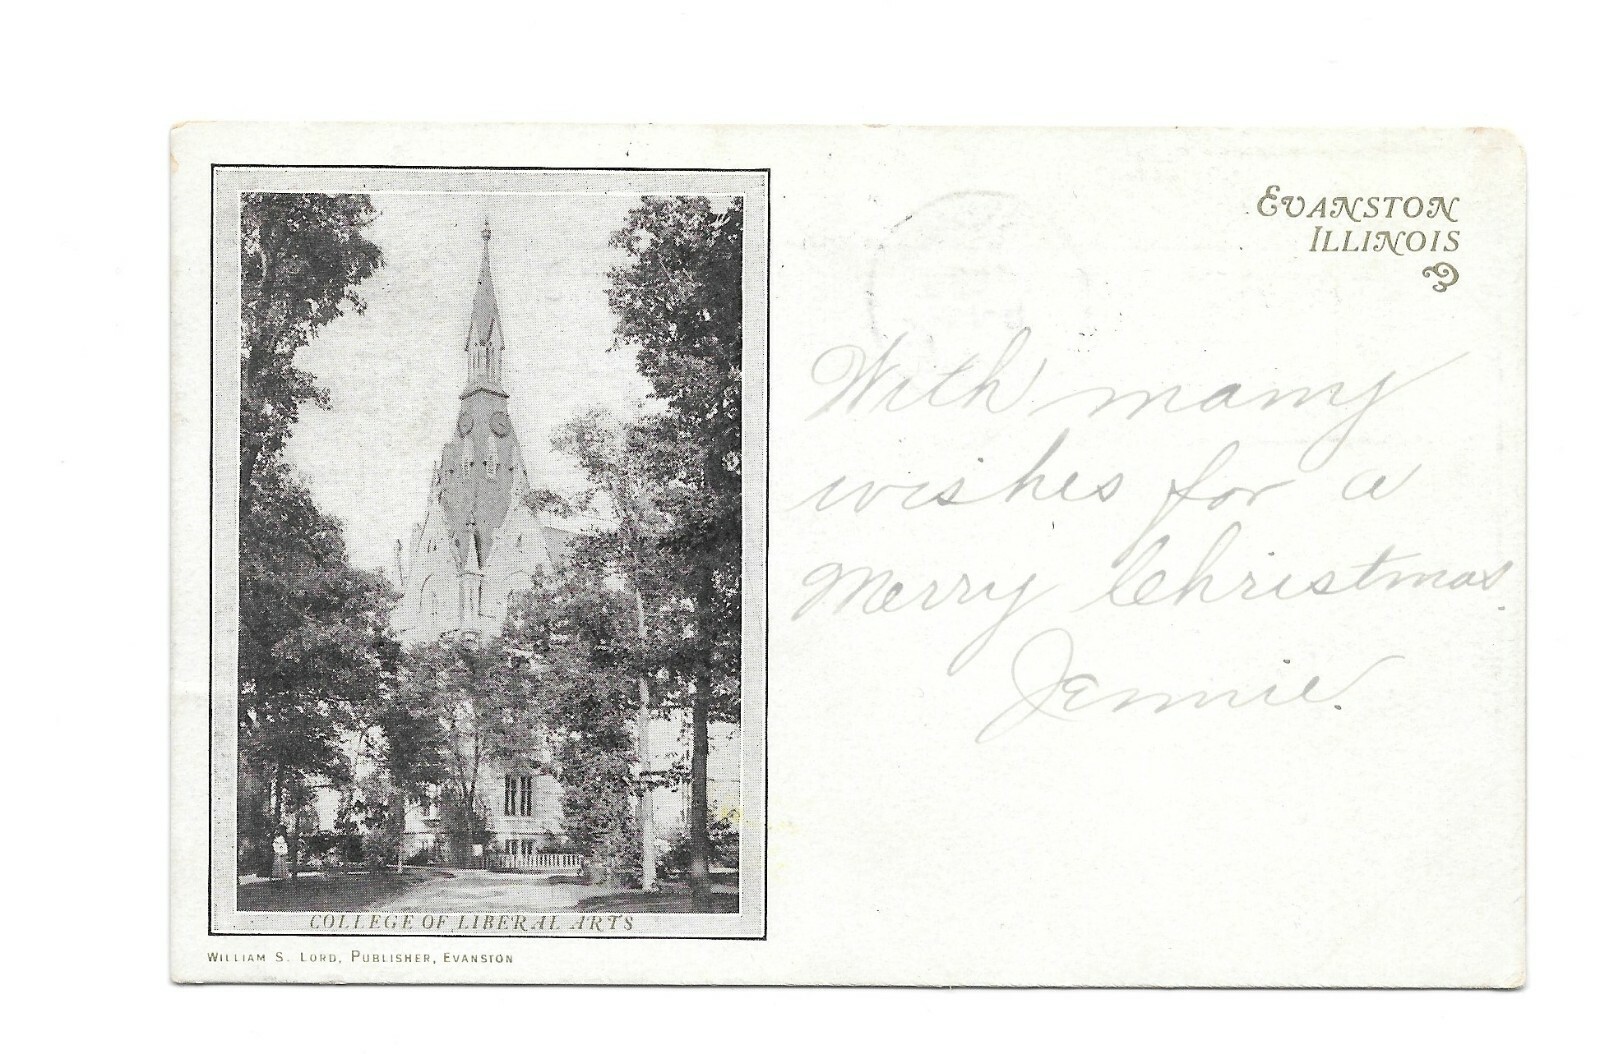 EVANSTON
ILLINOIS
With many
wishes for a
Merry Christmas.
Jennie.
COLLEGE OF LIBERAL ARTS
WILLIAM S. LORD, PUBLISHER, EVANSTON